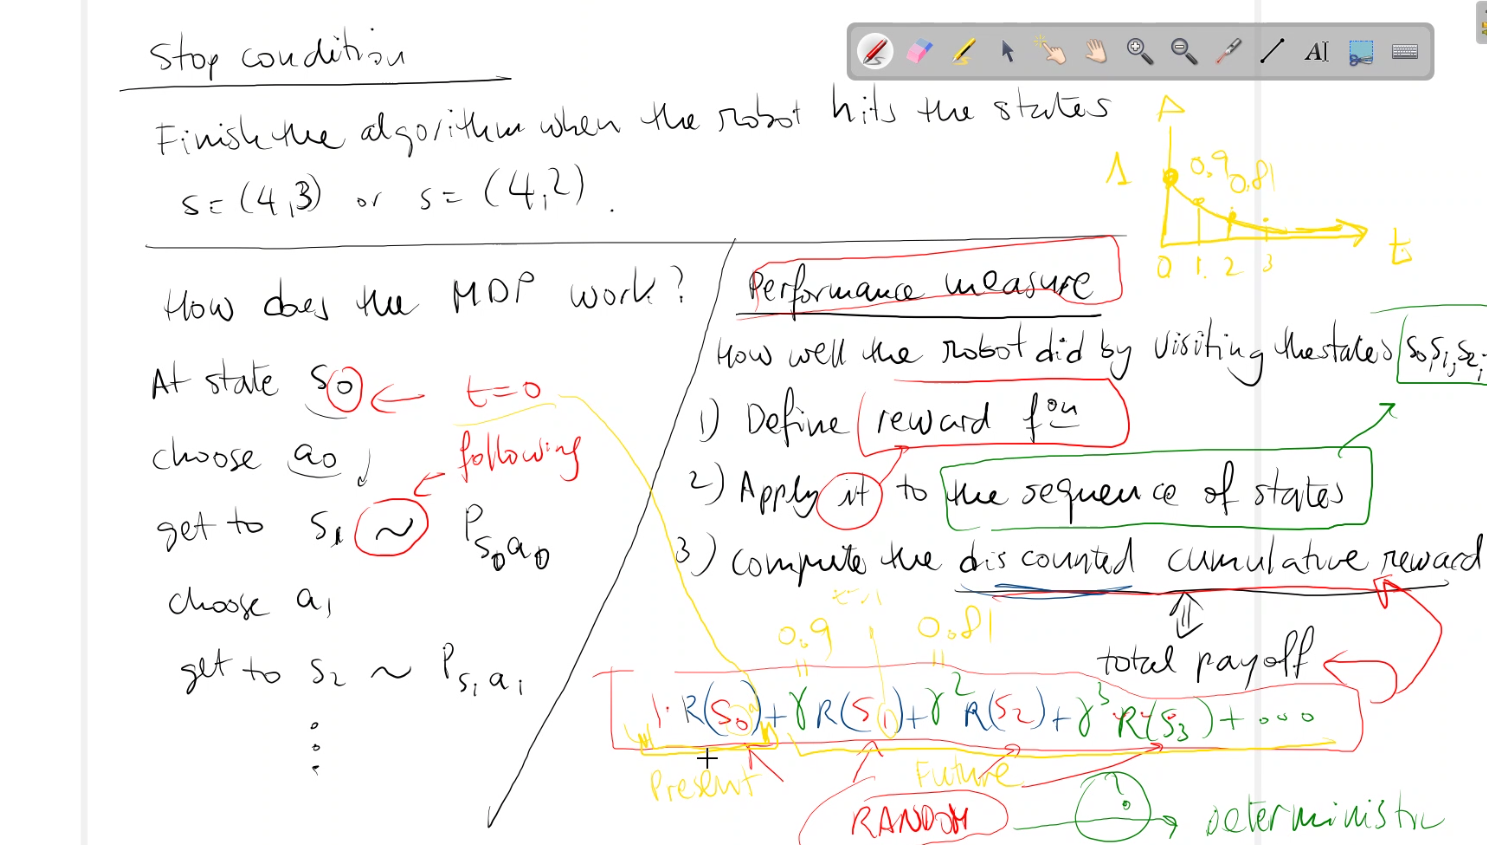 Stop condition
Finish the algorithm when the robot hits the states
s = (4,3) or s = (4,2).
1 0,9 0,81
0 1 2 3 t
How does the MDP work?
At state s0 ← t=0
choose a0
following
get to s1 ~ Ps0a0
choose a1
get to s2 ~ Ps1a1
Performance measure
How well the robot did by visiting the states s0, s1, s2,
1) Define reward fon
2) Apply it to the sequence of states
3) compute the discounted cumulative reward
t=1
0.9 0.81
total payoff
1. R(s0) + γ R(s1) + γ² R(s2) + γ³ R(s3) + ...
Present Future
RANDOM ? → Deterministic
AI